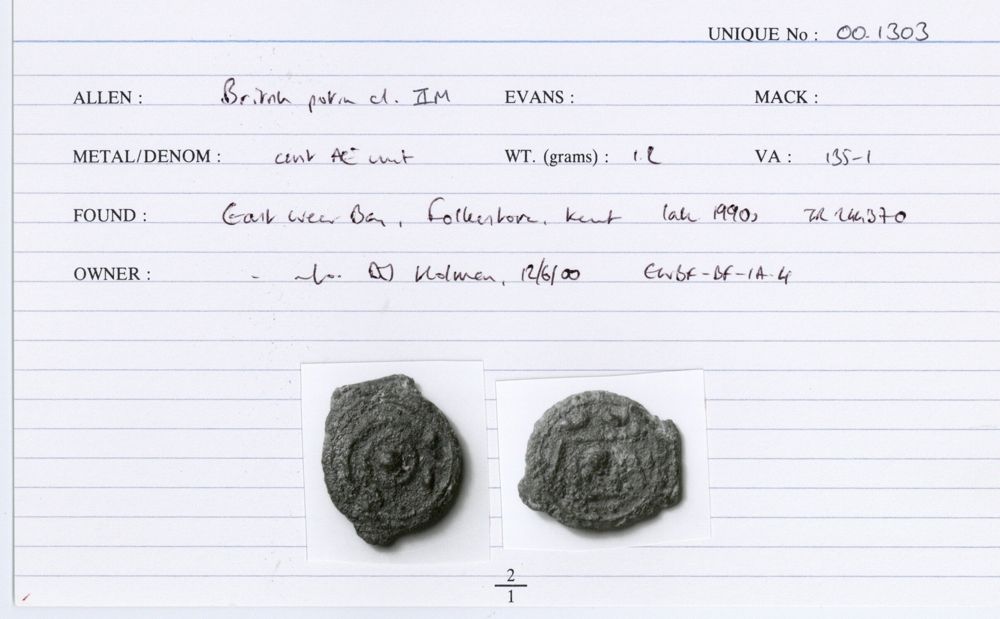 UNIQUE No : 00.1303
ALLEN : British potin cl. IIM EVANS : MACK :
METAL/DENOM : cast AE unit WT. (grams) : 1.2 VA : 135-1
FOUND : East Wear Bay, Folkestone, Kent late 1990s TR 244370
OWNER : - DJ Holman, 12/6/00 EWBF-BF-IA-4
2
1